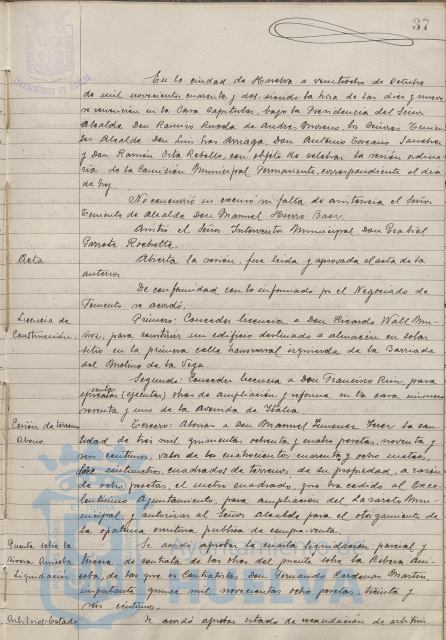 37
AYUNTAMIENTO DE HUELVA
En la ciudad de Huelva a veintiocho de Octubre
de mil novecientos cuarenta y dos, siendo la hora de las diez y nueve
se reunieron en la Casa Capitular, bajo la Presidencia del Señor
Alcalde Don Ramiro Rueda de Andrés Moreno, los Señores Tenien-
tes Alcalde Don Luis Arriaga, Don Antonio Sánchez
y Don Ramón Orta Rebollo, con objeto de celebrar la sesión ordina-
ria de la Comisión Municipal Permanente, correspondiente al día
de hoy.
No concurrió ni excusó su falta de asistencia el Señor
Teniente de Alcalde Don Manuel
Asistió el Señor Interventor Municipal Don Grabiel
Garrote
Acta
Abierta la sesión, fue leída y aprovada el acta de la
anterior.
De conformidad con lo informado por el Negociado de
Fomento se acordó:
Licencia de
Construcción.
Primero: Conceder licencia a Don Ricardo Wall Mu-
ñoz, para construir un edificio destinado a almacen en solar
sito en la primera calle transversal izquierda de la Barriada
del Molino de la Vega.
Segundo: Conceder licencia a Don Francisco Ruiz, para
(ejecutar) obras de ampliación y reforma en la casa número
noventa y uno de la Avenida de Italia.
Cesión de terreno
Abono
Tercero: Abonar a Don Manuel Jimenez la can-
tidad de tres mil quinientas ochenta y cuatro pesetas, noventa y
seis centimos, valor de los cuatrocientos cuarenta y ocho metros,
centimetros cuadrados de terrenos, de su propiedad, a razón
de ocho pesetas, el metro cuadrado, que ha cedido al Exce-
lentisimo Ayuntamiento, para ampliación del Lazareto Mu-
nicipal y autorizar al Señor Alcalde para el otorgamiento de
la oportuna escritura publica de compra-venta.
Puente sobre la
Rivera Anicoba
Liquidaciones
Se acordó aprobar la cuarta liquidación parcial y
de contrata de las obras del puente sobre la Ribera Ani-
coba, de las que es Contratista Don Fernando Cardenas Martin
importante quince mil novecientas ocho pesetas, treinta y
seis centimos.
Arbitrios-Estado
Se acordó aprobar estado de recaudación de arbitrios
HUELVA